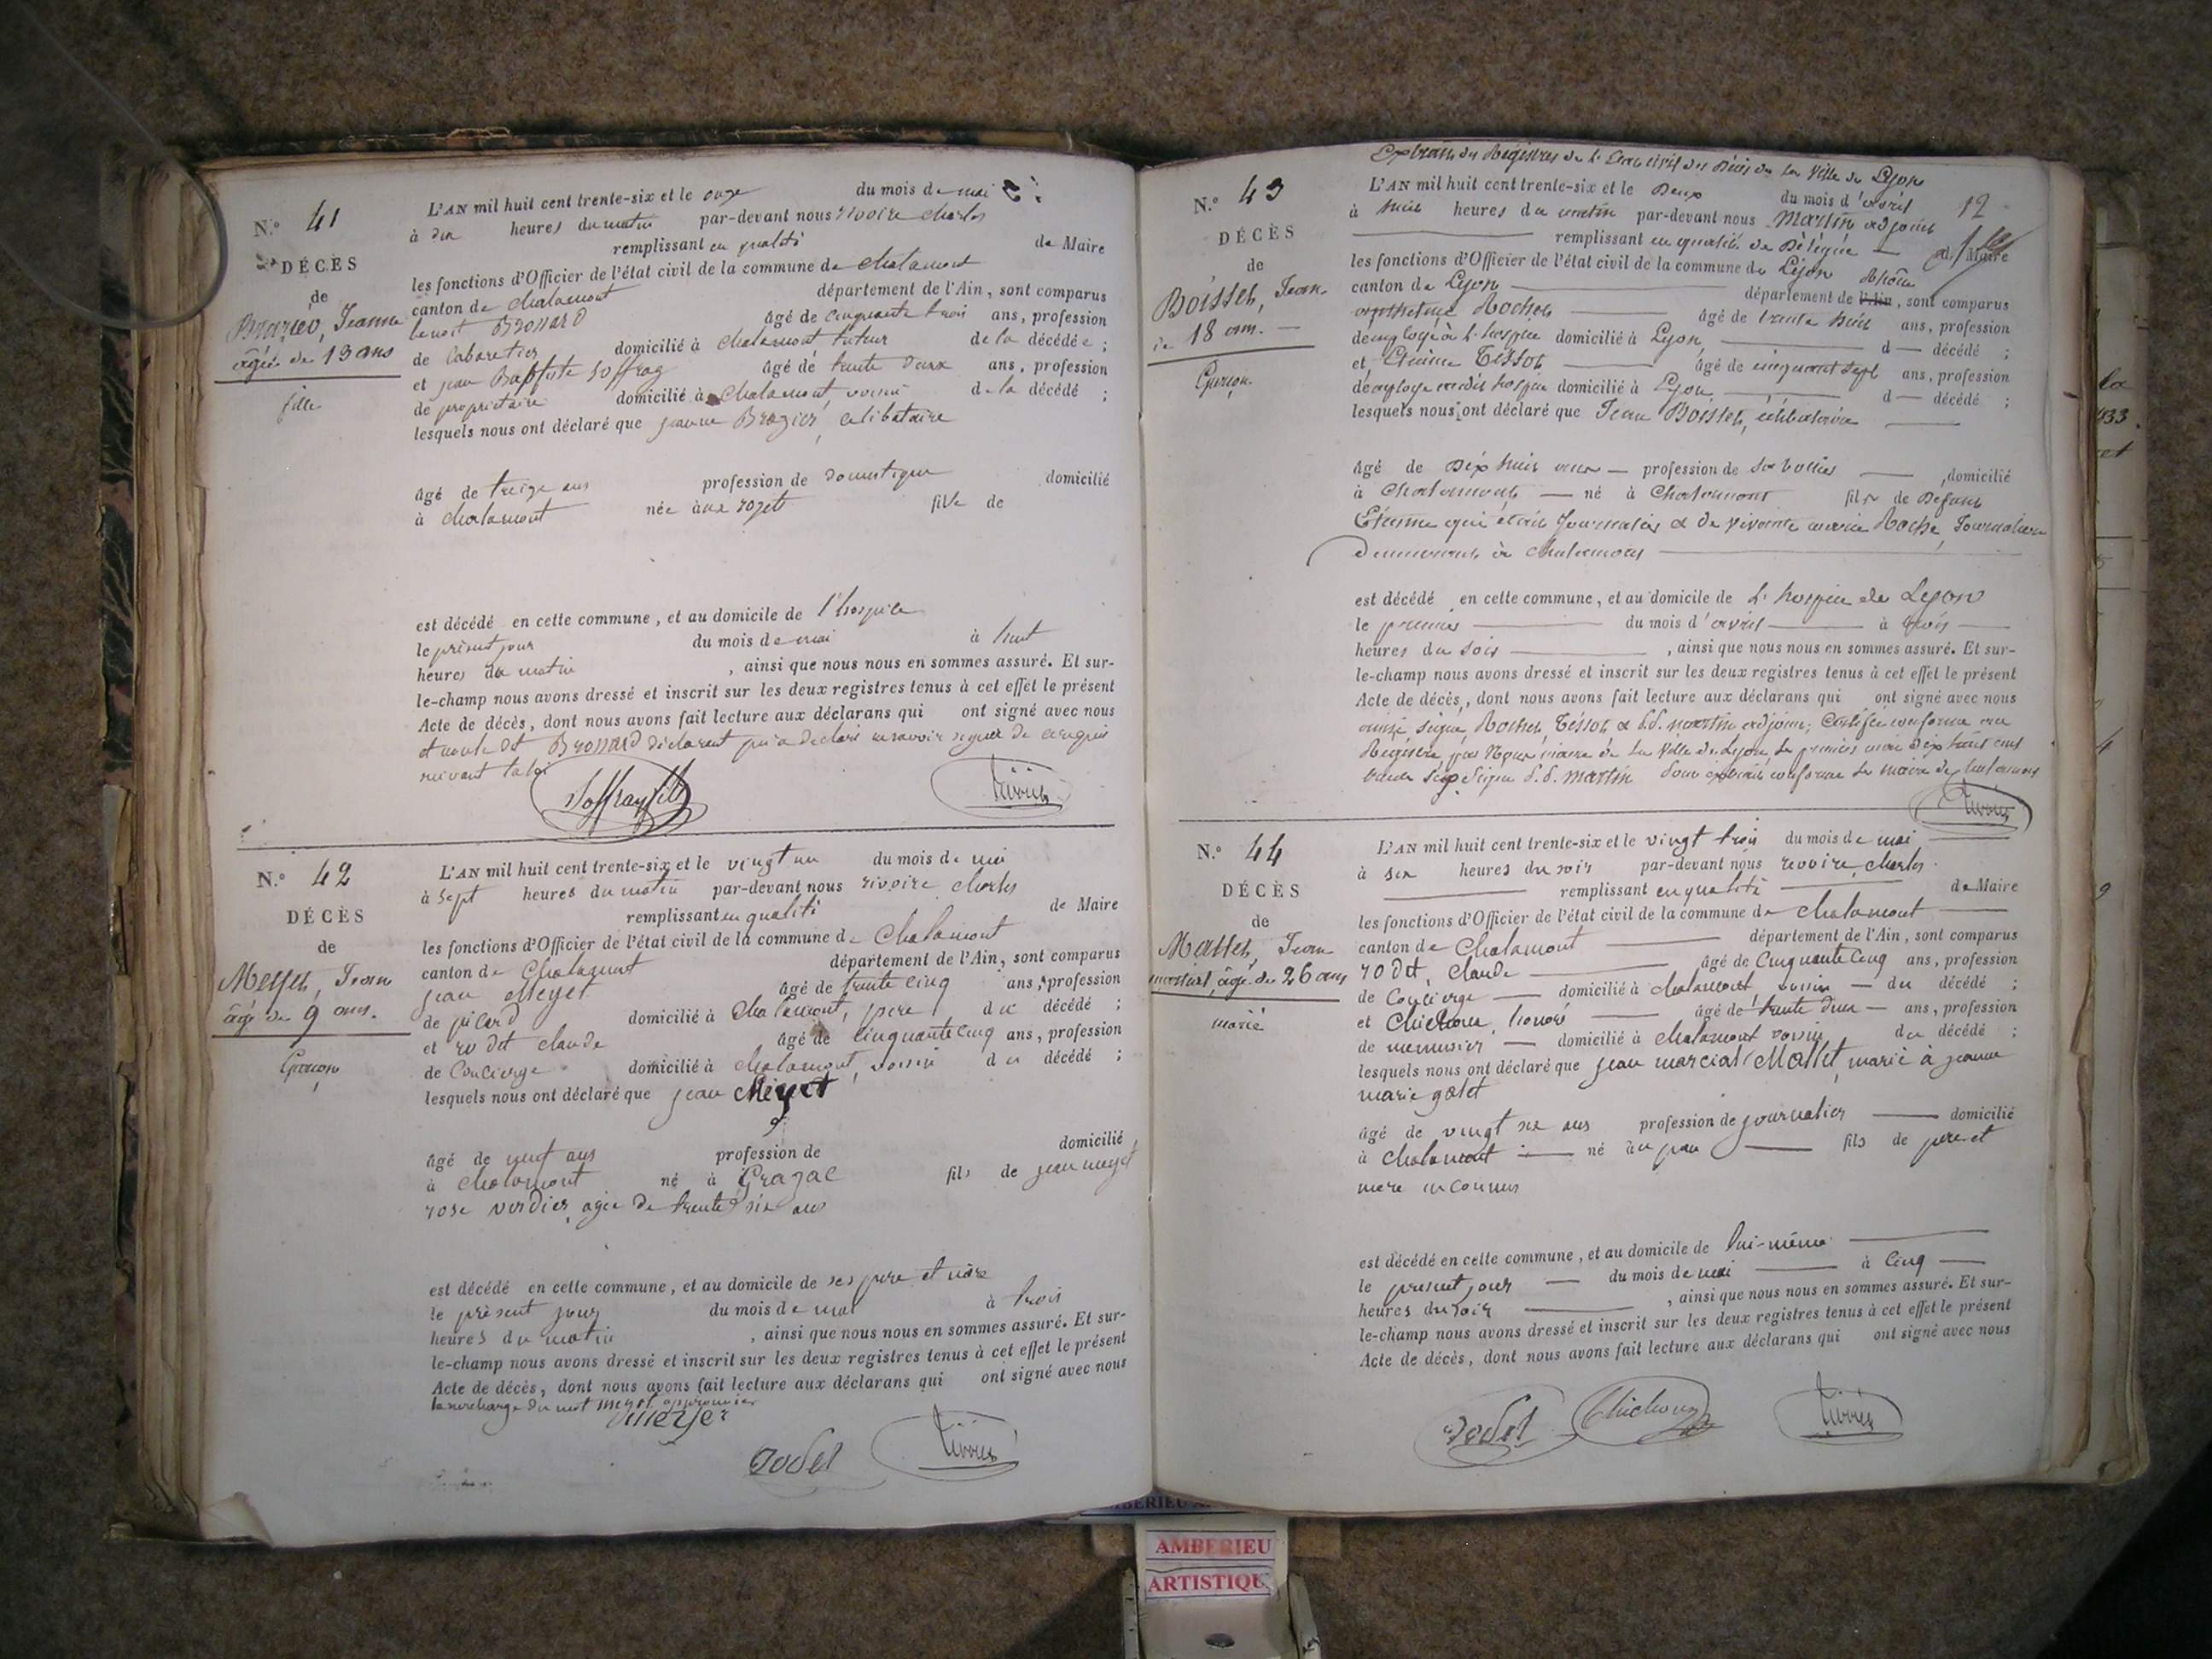 N.° 41
DÉCÈS
de
Brazier, Jeanne
âgée de 13 ans
fille
L'AN mil huit cent trente-six et le onze du mois de mai
à dix heures du matin par-devant nous rivoire charles
remplissant en qualité de Maire
les fonctions d'Officier de l'état civil de la commune de chalamont
canton de chalamont département de l'Ain, sont comparus
benoit Brossard âgé de cinquante trois ans, profession
de Cabaretier domicilié à chalamont tuteur de la décédée ;
et jean Baptiste soffray âgé de trente deux ans, profession
de propriétaire domicilié à chalamont, voisin de la décédé ;
lesquels nous ont déclaré que jeanne Brazier, celibataire
âgé de treize ans profession de domestique domicilié
à chalamont née à fille de
est décédé en cette commune, et au domicile de l'hospice
le présent jour du mois de mai à huit
heures du matin , ainsi que nous nous en sommes assuré. Et sur-
le-champ nous avons dressé et inscrit sur les deux registres tenus à cet effet le présent
Acte de décès, dont nous avons fait lecture aux déclarans qui ont signé avec nous
et non le dt Brossard déclarant qui a déclaré ne savoir signer de ce requis
suivant la loi
Soffray fils
N.° 42
DÉCÈS
de
Meyet, Jean
âgé de 9 ans.
Garçon
L'AN mil huit cent trente-six et le vingt un du mois de mai
à sept heures du matin par-devant nous rivoire charles
remplissant en qualité de Maire
les fonctions d'Officier de l'état civil de la commune de Chalamont
canton de Chalamont département de l'Ain, sont comparus
jean Meyet âgé de trente cinq ans, profession
de domicilié à Chalamont, père du décédé ;
et rodet claude âgé de cinquante cinq ans, profession
de Concierge domicilié à chalamont, voisin du décédé ;
lesquels nous ont déclaré que jean Meyet
âgé de neuf ans profession de domicilié
à chalamont né à Grazac fils de jean meyet
rose verdier agée de trente six ans
est décédé en cette commune, et au domicile de ses père et mère
le présent jour du mois de mai à trois
heures du matin , ainsi que nous nous en sommes assuré. Et sur-
le-champ nous avons dressé et inscrit sur les deux registres tenus à cet effet le présent
Acte de décès, dont nous avons fait lecture aux déclarans qui ont signé avec nous
la surcharge du mot meyet approuvée
rodet
Extrait des Registres de l'Etat civil des Décès de la Ville de Lyon
12
N.° 43
DÉCÈS
de
Boisset, Jean
de 18 ans.
Garçon
L'AN mil huit cent trente-six et le Deux du mois d'avril
à huit heures du matin par-devant nous Martin adjoint
remplissant en qualité de Délégué du Maire
les fonctions d'Officier de l'état civil de la commune de Lyon
canton de Lyon département de l'Ain Rhône, sont comparus
Rochet âgé de trente huit ans, profession
d'employé à l'hospice domicilié à Lyon d décédé ;
et Etienne Tissot âgé de cinquante sept ans, profession
d'employé audit hospice domicilié à Lyon d décédé ;
lesquels nous ont déclaré que Jean Boisset, célibataire
âgé de Dix huit ans profession de domicilié
à Chalamont né à Chalamont fils de Défunt
Etienne qui était Journalier & de vivante marie Roche, Journalière
demeurant à chalamont
est décédé en cette commune, et au domicile de L'hospice de Lyon
le premier du mois d'avril à trois
heures du soir , ainsi que nous nous en sommes assuré. Et sur-
le-champ nous avons dressé et inscrit sur les deux registres tenus à cet effet le présent
Acte de décès, dont nous avons fait lecture aux déclarans qui ont signé avec nous
ainsi signé, Rochet, Tissot & martin adjoint; Certifié conforme au
Registre par Nous maire de la Ville de Lyon, le premier mai dix huit cent
trente six signé martin Pour extrait conforme Le maire de chalamont
N.° 44
DÉCÈS
de
Mallet, Jean
martial, âgé de 26 ans
marié
L'AN mil huit cent trente-six et le vingt trois du mois de mai
à six heures du soir par-devant nous rivoire, charles
remplissant en qualité de Maire
les fonctions d'Officier de l'état civil de la commune de chalamont
canton de Chalamont département de l'Ain, sont comparus
rodet, claude âgé de Cinquante cinq ans, profession
de Concierge domicilié à chalamont voisin du décédé ;
et Chichoux, honoré âgé de trente deux ans, profession
de menuisier domicilié à chalamont voisin du décédé ;
lesquels nous ont déclaré que jean marcial Mallet, marié à jeanne
marie galet
âgé de vingt six ans profession de journalier domicilié
à chalamont né à fils de père et
mère inconnus
est décédé en cette commune, et au domicile de lui-même
le présent jour du mois de mai à cinq
heures du soir , ainsi que nous nous en sommes assuré. Et sur-
le-champ nous avons dressé et inscrit sur les deux registres tenus à cet effet le présent
Acte de décès, dont nous avons fait lecture aux déclarans qui ont signé avec nous
rodet Chichoux
AMBERIEU
ARTISTIQU